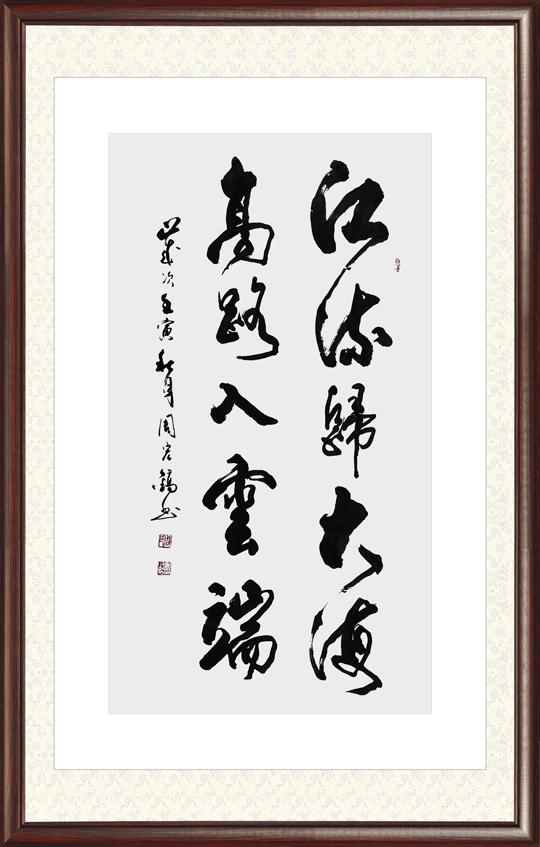 江流歸大海
高路入雲端
歲次壬寅秋月周書